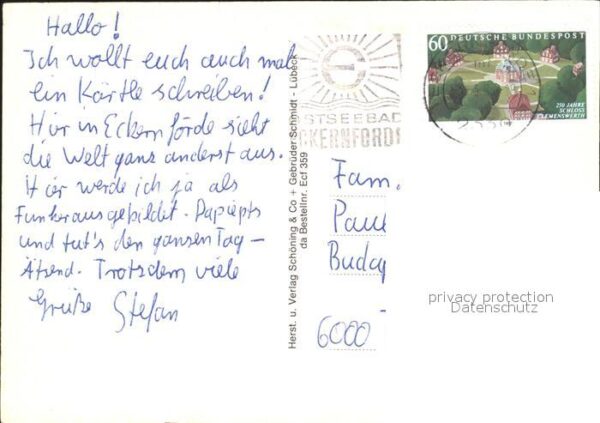 Hallo!
Ich wollt euch auch mal
ein Kärtle schreiben!
Hier in Eckernförde sieht
die Welt ganz anderst aus.
Hier werde ich ja als
Funker ausgebildet. Da piepts
und tut's den ganzen Tag –
Ätzend. Trotzdem viele
Grüße Stefan
Herst. u. Verlag Schöning & Co + Gebrüder Schmidt - Lübeck
da Bestellnr. Ecf 359
OSTSEEBAD
ECKERNFÖRDE
60 DEUTSCHE BUNDESPOST
250 JAHRE
SCHLOSS
CLEMENSWERTH
Fam.
Paul
6000
privacy protection
Datenschutz